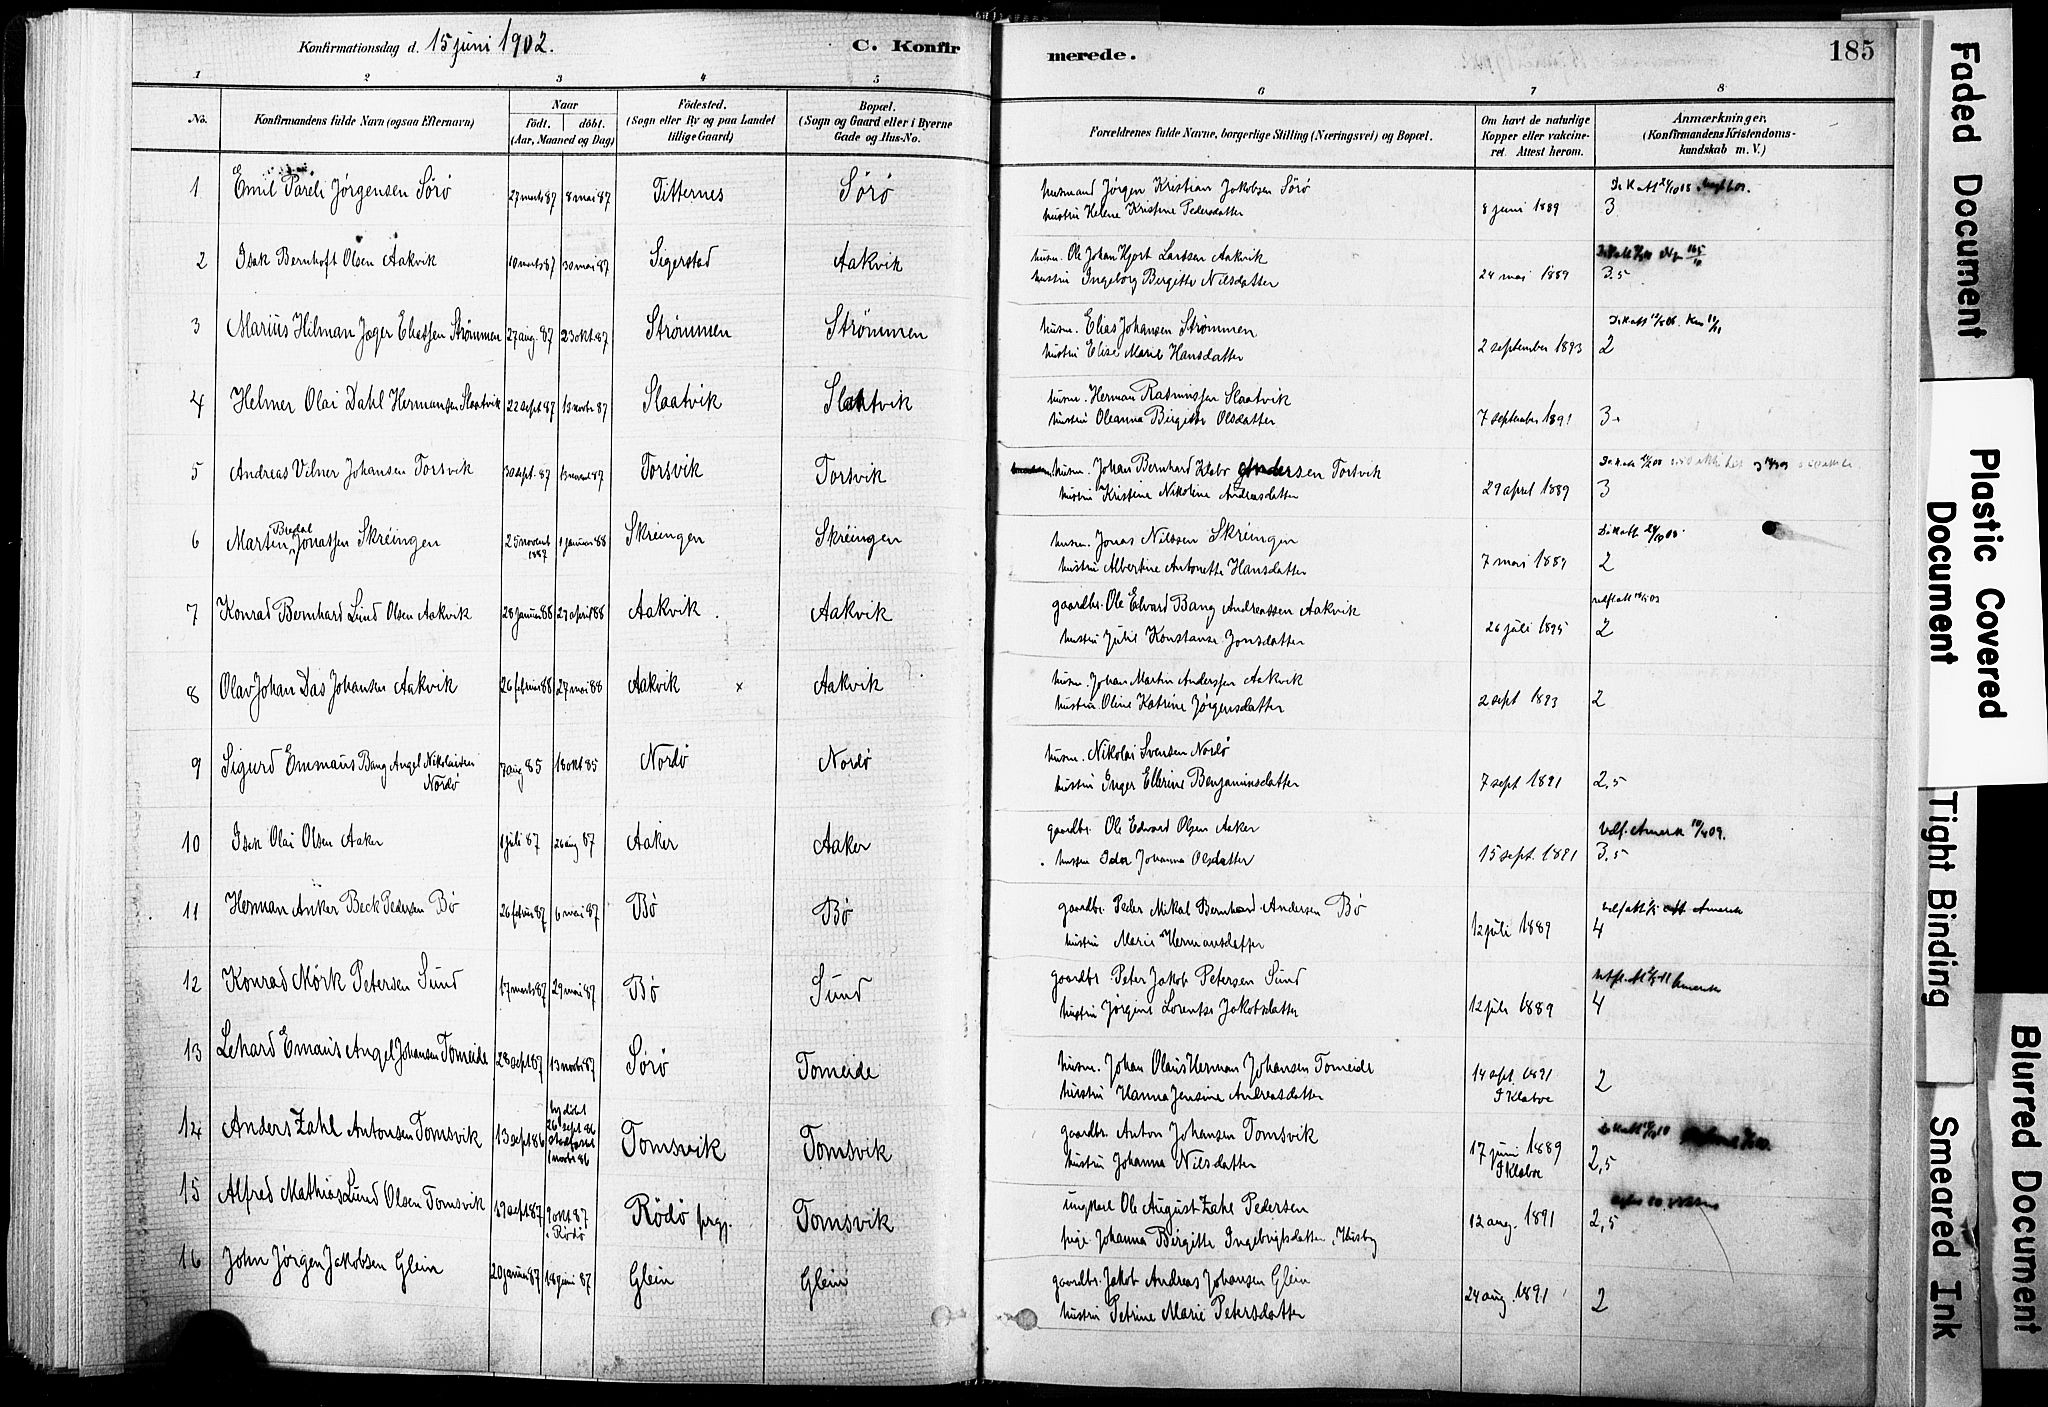 Konfirmationsdag d. 15 juni 1902. C. Konfirmerede. 185
1 2 3 4 5 6 7 8
No. Konfirmandens fulde Navn (ogsaa Efternavn) Naar födt. döbt. (Aar, Maaned og Dag) Födested. (Sogn eller By og paa Landet tillige Gaard) Bopæl. (Sogn og Gaard eller i Byerne Gade og Hus-No. Forældrenes fulde Navne, borgerlige Stilling (Næringsvei) og Bopæl. Om havt de naturlige Kopper eller vakcineret. Attest herom. Anmærkninger. (Konfirmandens Kristendomskundskab m. V.)
1 Emil Jörgensen Sörö 27 marts 87 8 mai 87 Titternes Sörö husmand Jörgen Kristian Jakobsen Sörö
hustru Helene Kristine Pedersdatter 8 juni 1889 3
2 Isak Bernhoft Olsen Aakvik 10 marts 87 30 mai 87 Sigerstad Aakvik husm. Ole Johan Hjort Larssen Aakvik
hustru Ingeborg Bergitte Nilsdatter 24 mai 1889 3.5
3 Marius Hilman Jæger Eliassen Strömmen 27 aug. 87 23 okt. 87 Strömmen Strömmen husm. Elias Johansen Strömmen
hustru Elise Marie Hansdatter 2 september 1893 2
4 Helmer Olai Dahl Hermansen Slaatvik 22 sept 87 13 novbr 87 Slaatvik Slaatvik husm. Herman Rasmussen Slaatvik
hustru Oleanna Birgitte Olsdatter 7 september 1891 3
5 Andreas Vilner Johansen Torsvik 30 sept. 87 Torsvik Torsvik husm. Johan Bernhard Klebo Andersen Torsvik
hustru Kristine Nikoline Andreasdatter 29 april 1889 3
6 Martin Bredal Jonassen Skreingen 25 novembr 1887 1 januar 88 Skreingen Skreingen husm. Jonas Nilssen Skreingen
hustru Albertine Antonette Hansdatter 7 mai 1889 2
7 Konrad Bernhard Lund Olsen Aakvik 28 januar 88 29 april 88 Aakvik Aakvik gaardbr. Ole Edvard Bang Andreassen Aakvik
hustru Julie Konstanse Jonsdatter 26 juli 1895 2
8 Olav Johan Das Johansen Aakvik 26 februar 88 27 mai 88 Aakvik x Aakvik husm. Johan Martin Anderssen Aakvik
hustru Oline Katrine Jörgensdatter 2 sept 1893 2
9 Sigurd Emmaus Bang Angel Nikolaisen Nordö 7 aug 85 18 okt 85 Nordö Nordö husm. Nikolai Svensen Nordö
hustru Inger Ellerine Benjaminsdatter 7 sept 1891 2,5
10 Isak Olai Olsen Aaker 1 juli 87 26 aug 87 Aaker Aaker gaardbr. Ole Edvard Olsen Aaker
hustru Ida Johanna Olsdatter 15 sept. 1891 Udf. Amerk 10/4 09. 3,5
11 Herman Anker Beck Pedersen Bö 26 februar 87 6 mai 87 Bö Bö gaardbr. Peder Mikal Bernhard Andersen Bö
hustru Marie Hermansdatter 12 juli 1889 4
12 Konrad Mörk Petersen Sund 17 marts 87 29 mai 87 Bö Sund gaardbr. Peter Jakob Petersen Sund
hustru Jörgine Lorentse Jakobsdatter 12 juli 1889 4
13 Lehard Emaus Angel Johansen Tomeide 28 sept 87 13 novbr 87 Sörö Tomeide husm. Johan Olaus Herman Johansen Tomeide
hustru Hanna Jensine Andreasdatter 14 sept. 1891 I Klaboe 2
14 Anders Zahl Antonsen Tomsvik 13 sept 86 hjdöbt 26 sept 86 stadfæstet 1 novbr 86 Tomsvik Tomsvik gaardbr. Anton Johansen Tomsvik
hustru Johanna Nilsdatter 17 juni 1889 I Klaboe 2,5
15 Alfred Mathias Lund Olsen Tomsvik 19 sept 87 9 okt 87 i Rödö Rödö prgj. Tomsvik ungkarl Ole August Zahl Pedersen
pige Johanna Birgitte Ingebrigtsdatter, Husby 12 aug. 1891 2,5
16 John Jörgen Jakobsen Glein 20 januar 87 18 juni 87 Glein Glein gaardbr. Jakob Andreas Johansen Glein
hustru Petrine Marie Petersdatter 24 aug. 1891 2
Faded Document
Plastic Covered Document
Tight Binding
Blurred Document
Smeared Ink